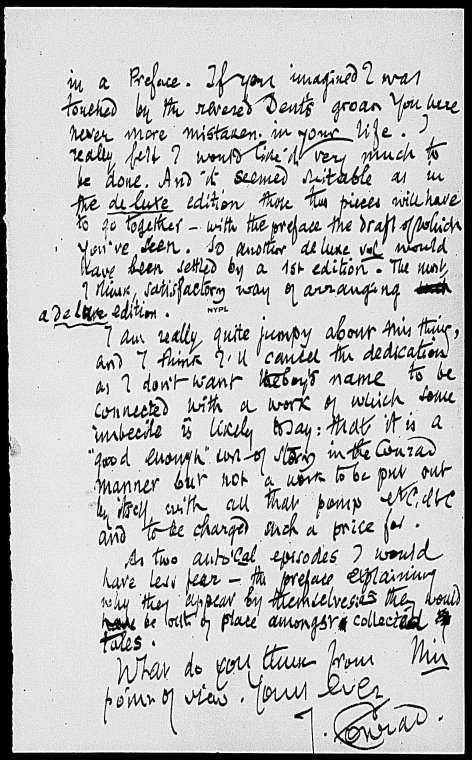 in a Preface. If you imagined I was
touched by the revered Dent's groan you were
never more mistaken in your life. I
really felt I would like it very much to
be done. And it seemed suitable as in
the de luxe edition those two pieces will have
to go together – with the preface the draft of which
you've seen. So another de luxe vol would
have been settled by a 1st edition. The most,
I think, satisfactory way of arranging
a de luxe edition.
NYPL
I am really quite jumpy about this thing,
and I think I'll cancel the dedication
as I don't want the boy's name to be
connected with a work of which some
imbecile is likely to say: that it is a
"good enough" sort of story in the Conrad
manner but not a work to be put out
by itself with all that pomp etc, etc
and to be charged such a price for.
As two auto'cal episodes I would
have less fear – the preface explaining
why they appear by themselves: they would
be out of place amongst collected
tales.
What do you think from this
point of view. Yours ever
J. Conrad.